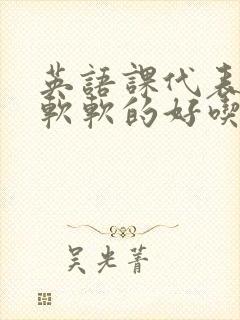 英語課代表
軟軟的好喫
吳光菁